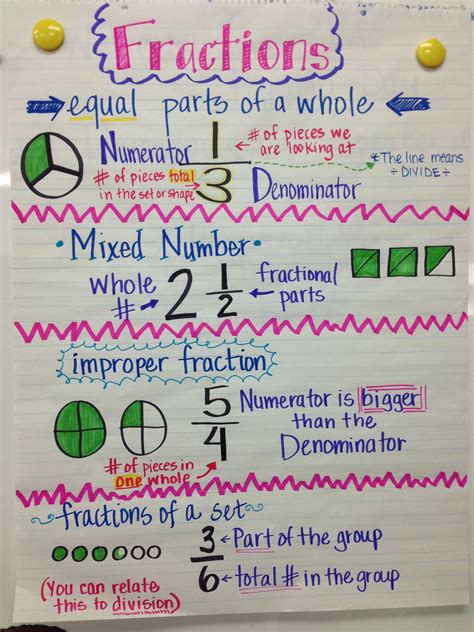 Fractions
equal parts of a whole
Numerator 1 # of pieces we are looking at
# of pieces total in the set or shape 3 Denominator
*The line means ÷DIVIDE÷
• Mixed Number •
Whole # → 2 1/2 ← fractional parts
improper fraction
5/4 Numerator is bigger than the Denominator
# of pieces in one whole
fractions of a set
3 ← Part of the group
6 ← total # in the group
(You can relate this to division)